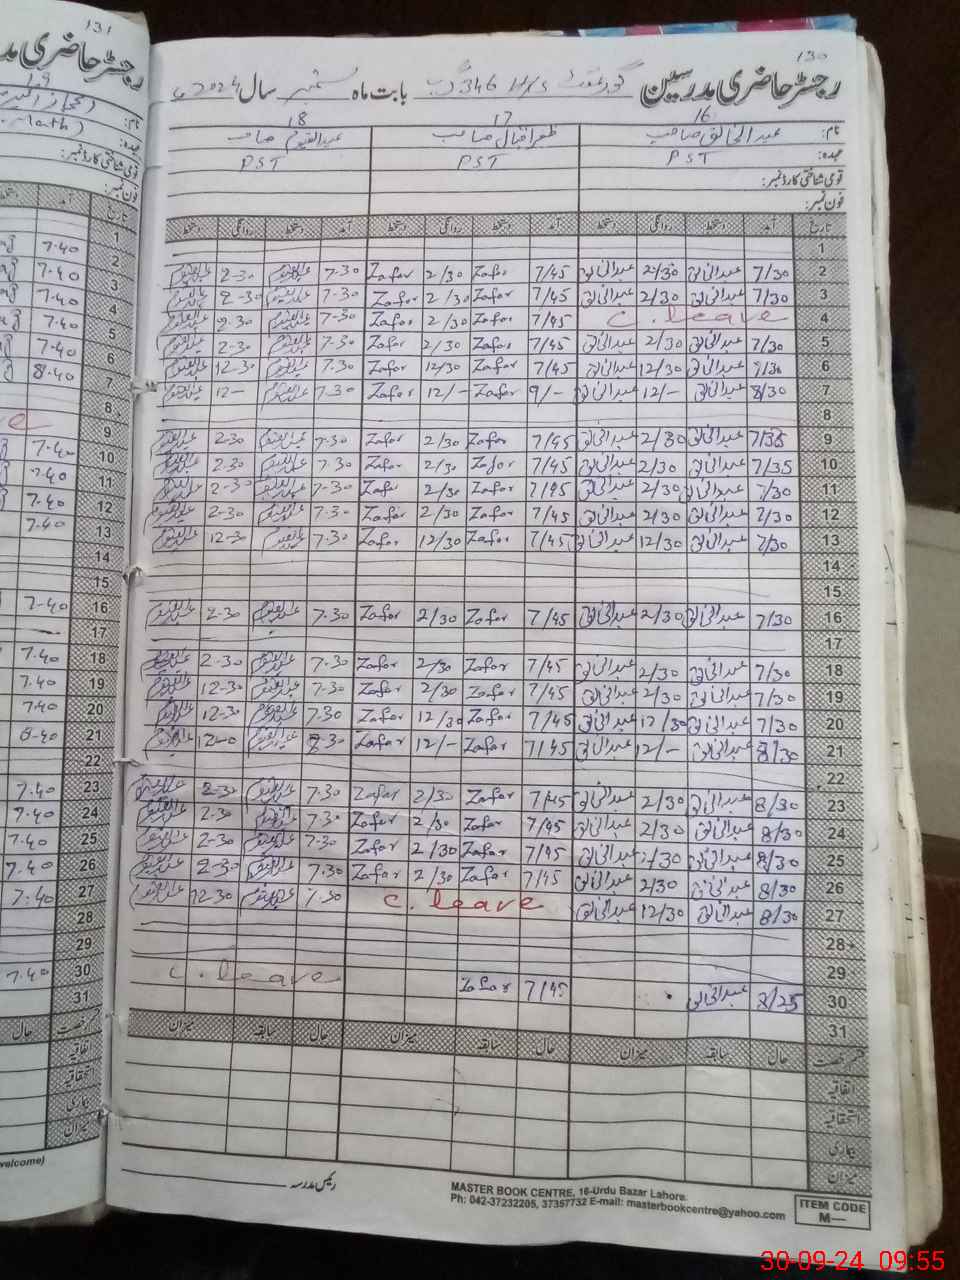 130
رجسٹر حاضری مدرسین 346 گ ب بابت ماہ ستمبر سال 2024ء
16 17 18
نام: عبدالخالق صاحب ظفر اقبال صاحب عبدالقیوم صاحب
عہدہ: PST PST PST
قومی شناختی کارڈ نمبر:
فون نمبر:
تاریخ آمد دستخط روانگی دستخط آمد دستخط روانگی دستخط آمد دستخط روانگی دستخط
1
2 7/30 عبدالخالق 2/30 عبدالخالق 7/45 Zafar 2/30 Zafar 7-30 عبدالقیوم 2-30 عبدالقیوم
3 7/30 عبدالخالق 2/30 عبدالخالق 7/45 Zafar 2/30 Zafar 7-30 عبدالقیوم 2-30 عبدالقیوم
4 C. leave 7/45 Zafar 2/30 Zafar 7-30 عبدالقیوم 2-30 عبدالقیوم
5 7/30 عبدالخالق 2/30 عبدالخالق 7/45 Zafar 2/30 Zafar 7-30 عبدالقیوم 2-30 عبدالقیوم
6 عبدالخالق 12/30 عبدالخالق 7/45 Zafar 12/30 Zafar 7-30 عبدالقیوم 12-30 عبدالقیوم
7 8/30 عبدالخالق 12/- عبدالخالق 9/- Zafar 12/- Zafar 7-30 عبدالقیوم 12- عبدالقیوم
8
9 7/35 عبدالخالق 2/30 عبدالخالق 7/45 Zafar 2/30 Zafar 7-30 عبدالقیوم 2-30 عبدالقیوم
10 7/35 عبدالخالق 2/30 عبدالخالق 7/45 Zafar 2/30 Zafar 7-30 عبدالقیوم 2-30 عبدالقیوم
11 7/30 عبدالخالق 2/30 عبدالخالق 7/45 Zafar 2/30 Zafar 7-30 عبدالقیوم 2-30 عبدالقیوم
12 7/30 عبدالخالق 2/30 عبدالخالق 7/45 Zafar 2/30 Zafar 7-30 عبدالقیوم 2-30 عبدالقیوم
13 7/30 عبدالخالق 12/30 عبدالخالق 7/45 Zafar 12/30 Zafar 7-30 عبدالقیوم 12-30 عبدالقیوم
14
15
16 7/30 عبدالخالق 2/30 عبدالخالق 7/45 Zafar 2/30 Zafar 7-30 عبدالقیوم 2-30 عبدالقیوم
17
18 7/30 عبدالخالق 2/30 عبدالخالق 7/45 Zafar 2/30 Zafar 7-30 عبدالقیوم 2-30 عبدالقیوم
19 7/30 عبدالخالق 2/30 عبدالخالق 7/45 Zafar 2/30 Zafar 7-30 عبدالقیوم 12-30 عبدالقیوم
20 7/30 عبدالخالق 12/30 عبدالخالق 7/45 Zafar 12/30 Zafar 7-30 عبدالقیوم 12-30 عبدالقیوم
21 8/30 عبدالخالق 12/- عبدالخالق 7/45 Zafar 12/- Zafar عبدالقیوم عبدالقیوم
22
23 8/30 عبدالخالق 2/30 عبدالخالق 7/45 Zafar 2/30 Zafar 7-30 عبدالقیوم 2-30 عبدالقیوم
24 8/30 عبدالخالق 2/30 عبدالخالق 7/45 Zafar 2/30 Zafar 7-30 عبدالقیوم 2-30 عبدالقیوم
25 8/30 عبدالخالق 2/30 عبدالخالق 7/45 Zafar 2/30 Zafar 7-30 عبدالقیوم 2-30 عبدالقیوم
26 8/30 عبدالخالق 2/30 عبدالخالق 7/45 Zafar 2/30 Zafar 7-30 عبدالقیوم 2-30 عبدالقیوم
27 8/30 عبدالخالق 12/30 عبدالخالق C. leave 7-30 عبدالقیوم 12-30 عبدالقیوم
28
29
30 عبدالخالق 7/45 Zafar C. leave
31
قسم رخصت حال سابقہ میزان حال سابقہ میزان حال سابقہ میزان
اتفاقیہ
استحقاقیہ
بیماری
میزان
رئیس مدرسہ
MASTER BOOK CENTRE, 16-Urdu Bazar Lahore.
Ph: 042-37232205, 37357732 E-mail: masterbookcentre@yahoo.com
ITEM CODE
M—
131
رجسٹر حاضری مد
19
نام:
عہدہ: Math)
قومی شناختی کارڈ نمبر:
فون نمبر:
تاریخ آمد
1
2 7-40
3 7-40
4 7-40
5 7-40
6 7-40
7 8-40
8
9 7-40
10 7-40
11 7-40
12 7-40
13
14
15
16 7-40
17
18 7-40
19 7-40
20 7-40
21 8-40
22
23 7-40
24 7-40
25 7-40
26 7-40
27 7-40
28
29
30 7-40
31
حال قسم رخصت
اتفاقیہ
استحقاقیہ
بیماری
میزان
welcome)
30-09-24 09:55